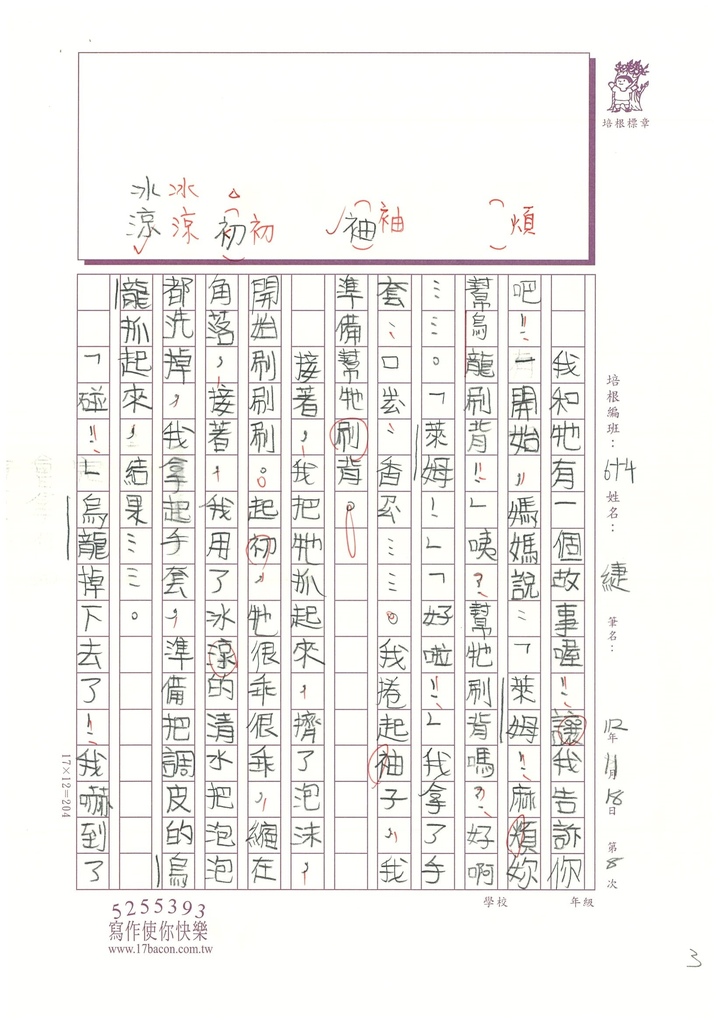 培根標章
冰 冰
涼 涼 初 初 袖 袖 煩
我和牠有一個故事喔！讓我告訴你
吧！一開始，媽媽說：「萊姆！麻煩妳
幫烏龍刷背！」咦？幫牠刷背嗎？好啊
……。「萊姆！」「好啦！」我拿了手
套……。我捲起袖子，我
準備幫牠刷背。
接著，我把牠抓起來，擠了泡沫，
開始刷刷刷。起初，牠很乖很乖，縮在
角落，接著，我用了冰涼的清水把泡泡
都洗掉，我拿起手套，準備把調皮的烏
龍抓起來，結果……。
「碰！」烏龍掉下去了！我嚇到了
培根編班：614 姓名：緁 筆名： 12年11月18日 第8次
學校 年級
17×12=204
5255393
寫作使你快樂
www.17bacon.com.tw
3